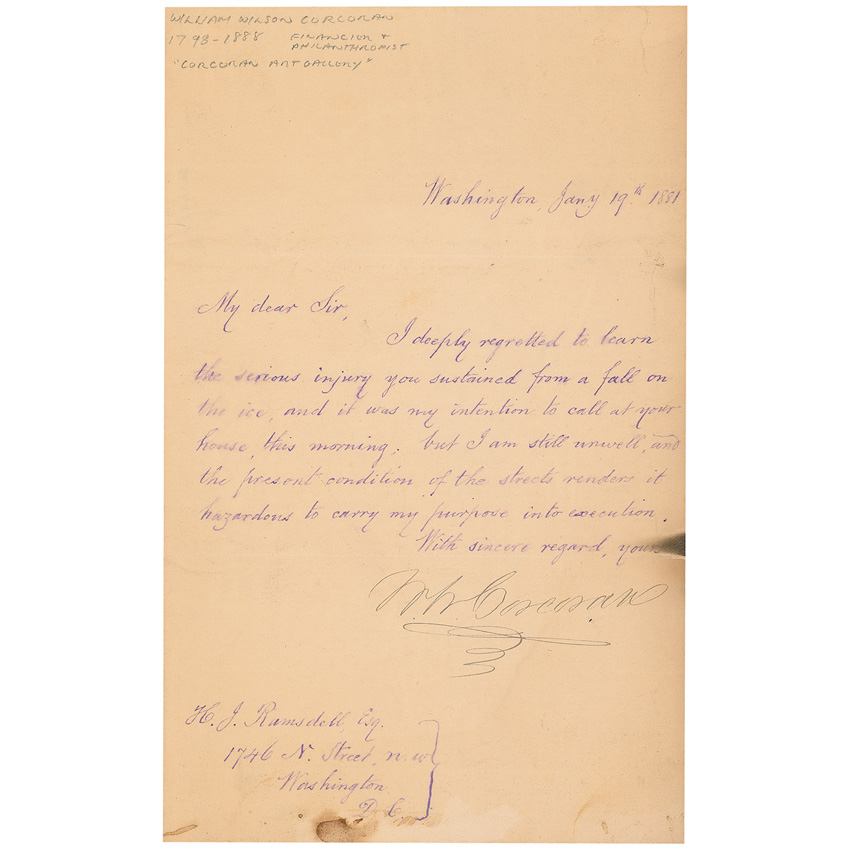 WILLIAM WILSON CORCORAN
1793-1888 FINANCIER &
PHILANTHROPIST
"CORCORAN ART GALLERY"
Washington, Jany 19th 1881
My dear Sir,
I deeply regretted to learn
the serious injury you sustained from a fall on
the ice, and it was my intention to call at your
house, this morning; but I am still unwell, and
the present condition of the streets renders it
hazardous to carry my purpose into execution.
With sincere regard, yours
W W Corcoran
H. J. Ramsdell, Esq.
1746 N. Street, n.w
Washington
D. C.